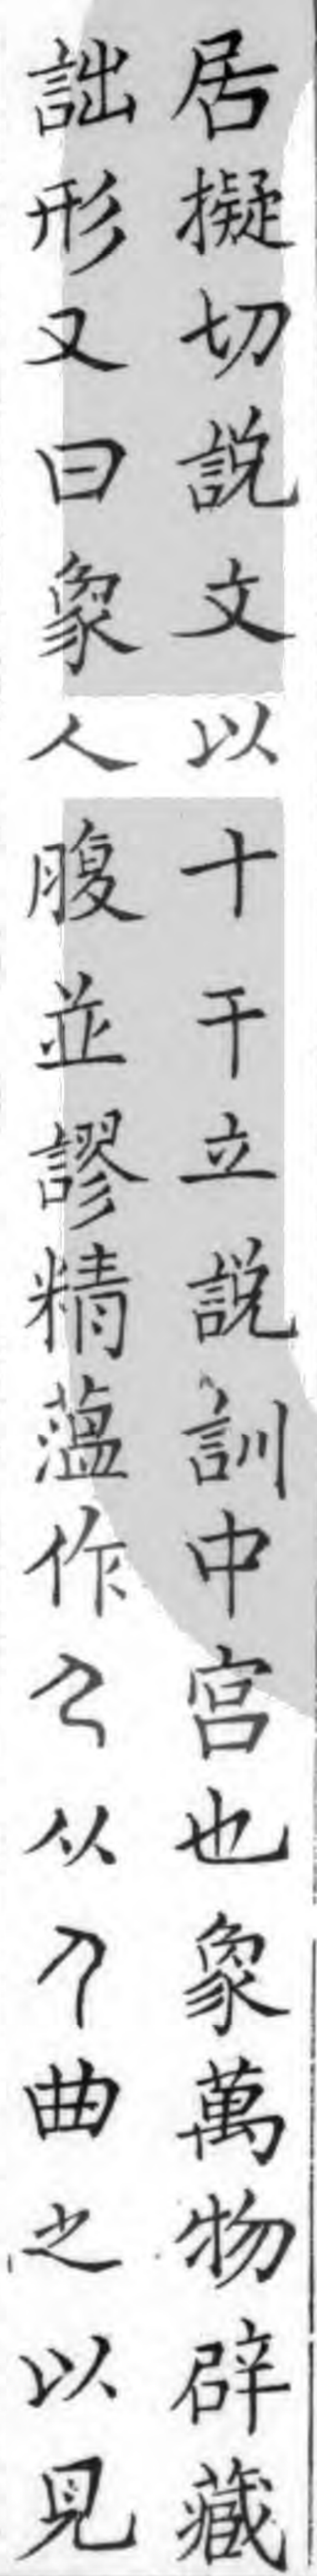 居擬切説文以十干立説訓中宫也象萬物辟藏
詘形又曰象人腹並謬精藴作𠃋从𠂆曲之以見